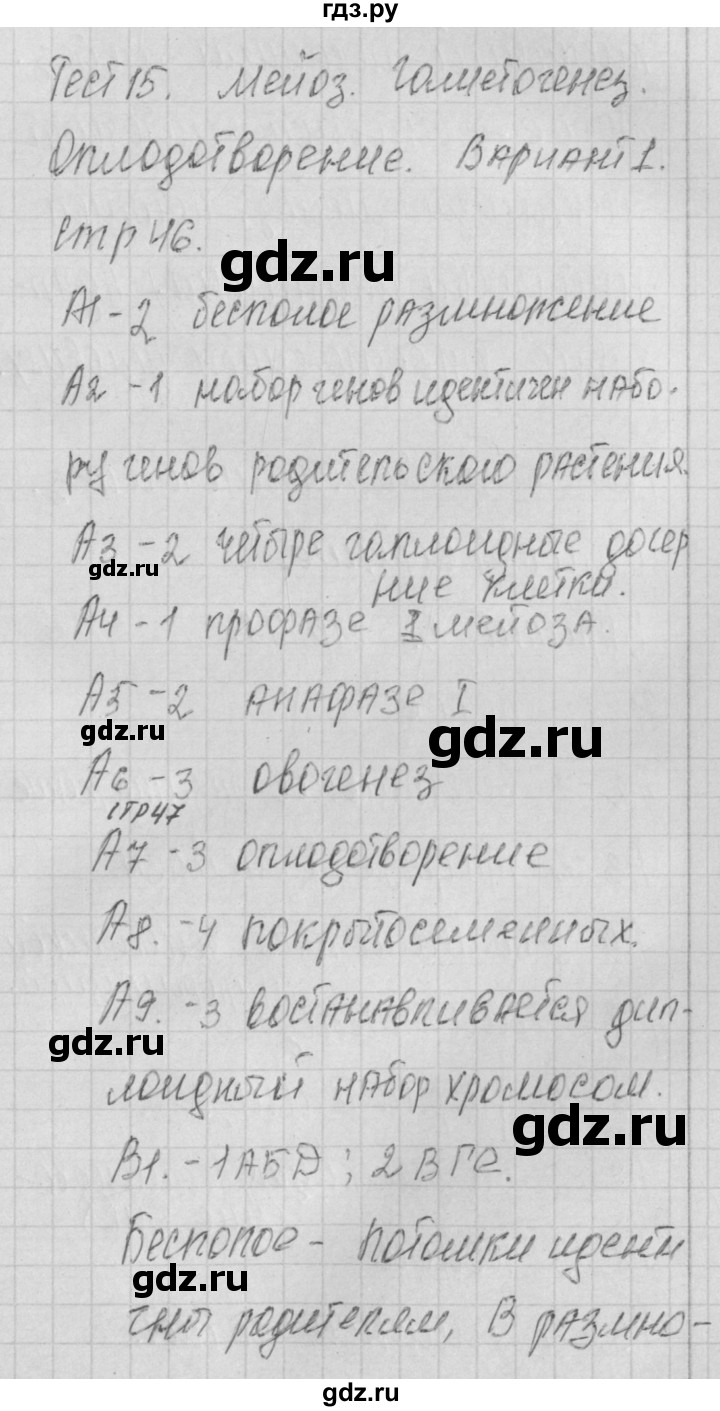 гдз.ру
Тест 15. Мейоз. Гаметогенез.
Оплодотворение. Вариант 1.
стр 46.
gdz.ru
А1 - 2 бесполое размножение
А2 - 1 набор генов идентичен набо-
ру генов родительского растения.
А3 - 2 четыре гаплоидные дочер
ние клетки.
gdz.ru
А4 - 1 профазе 1 мейоза.
А5 - 2 анафазе I
gdz.ru
gdz.ru
А6 - 3 овогенез
стр 47
А7 - 3 оплодотворение
А8. - 4 покрытосеменных.
А9. - 3 востанавливается дип-
gdz.ru
лоидный набор хромосом.
gdz.ru
В1. - 1 А Б Д ; 2 В Г Е.
Бесполое - потомки иденти
gdz.ru
чны родителям, В размно-
gdz.ru